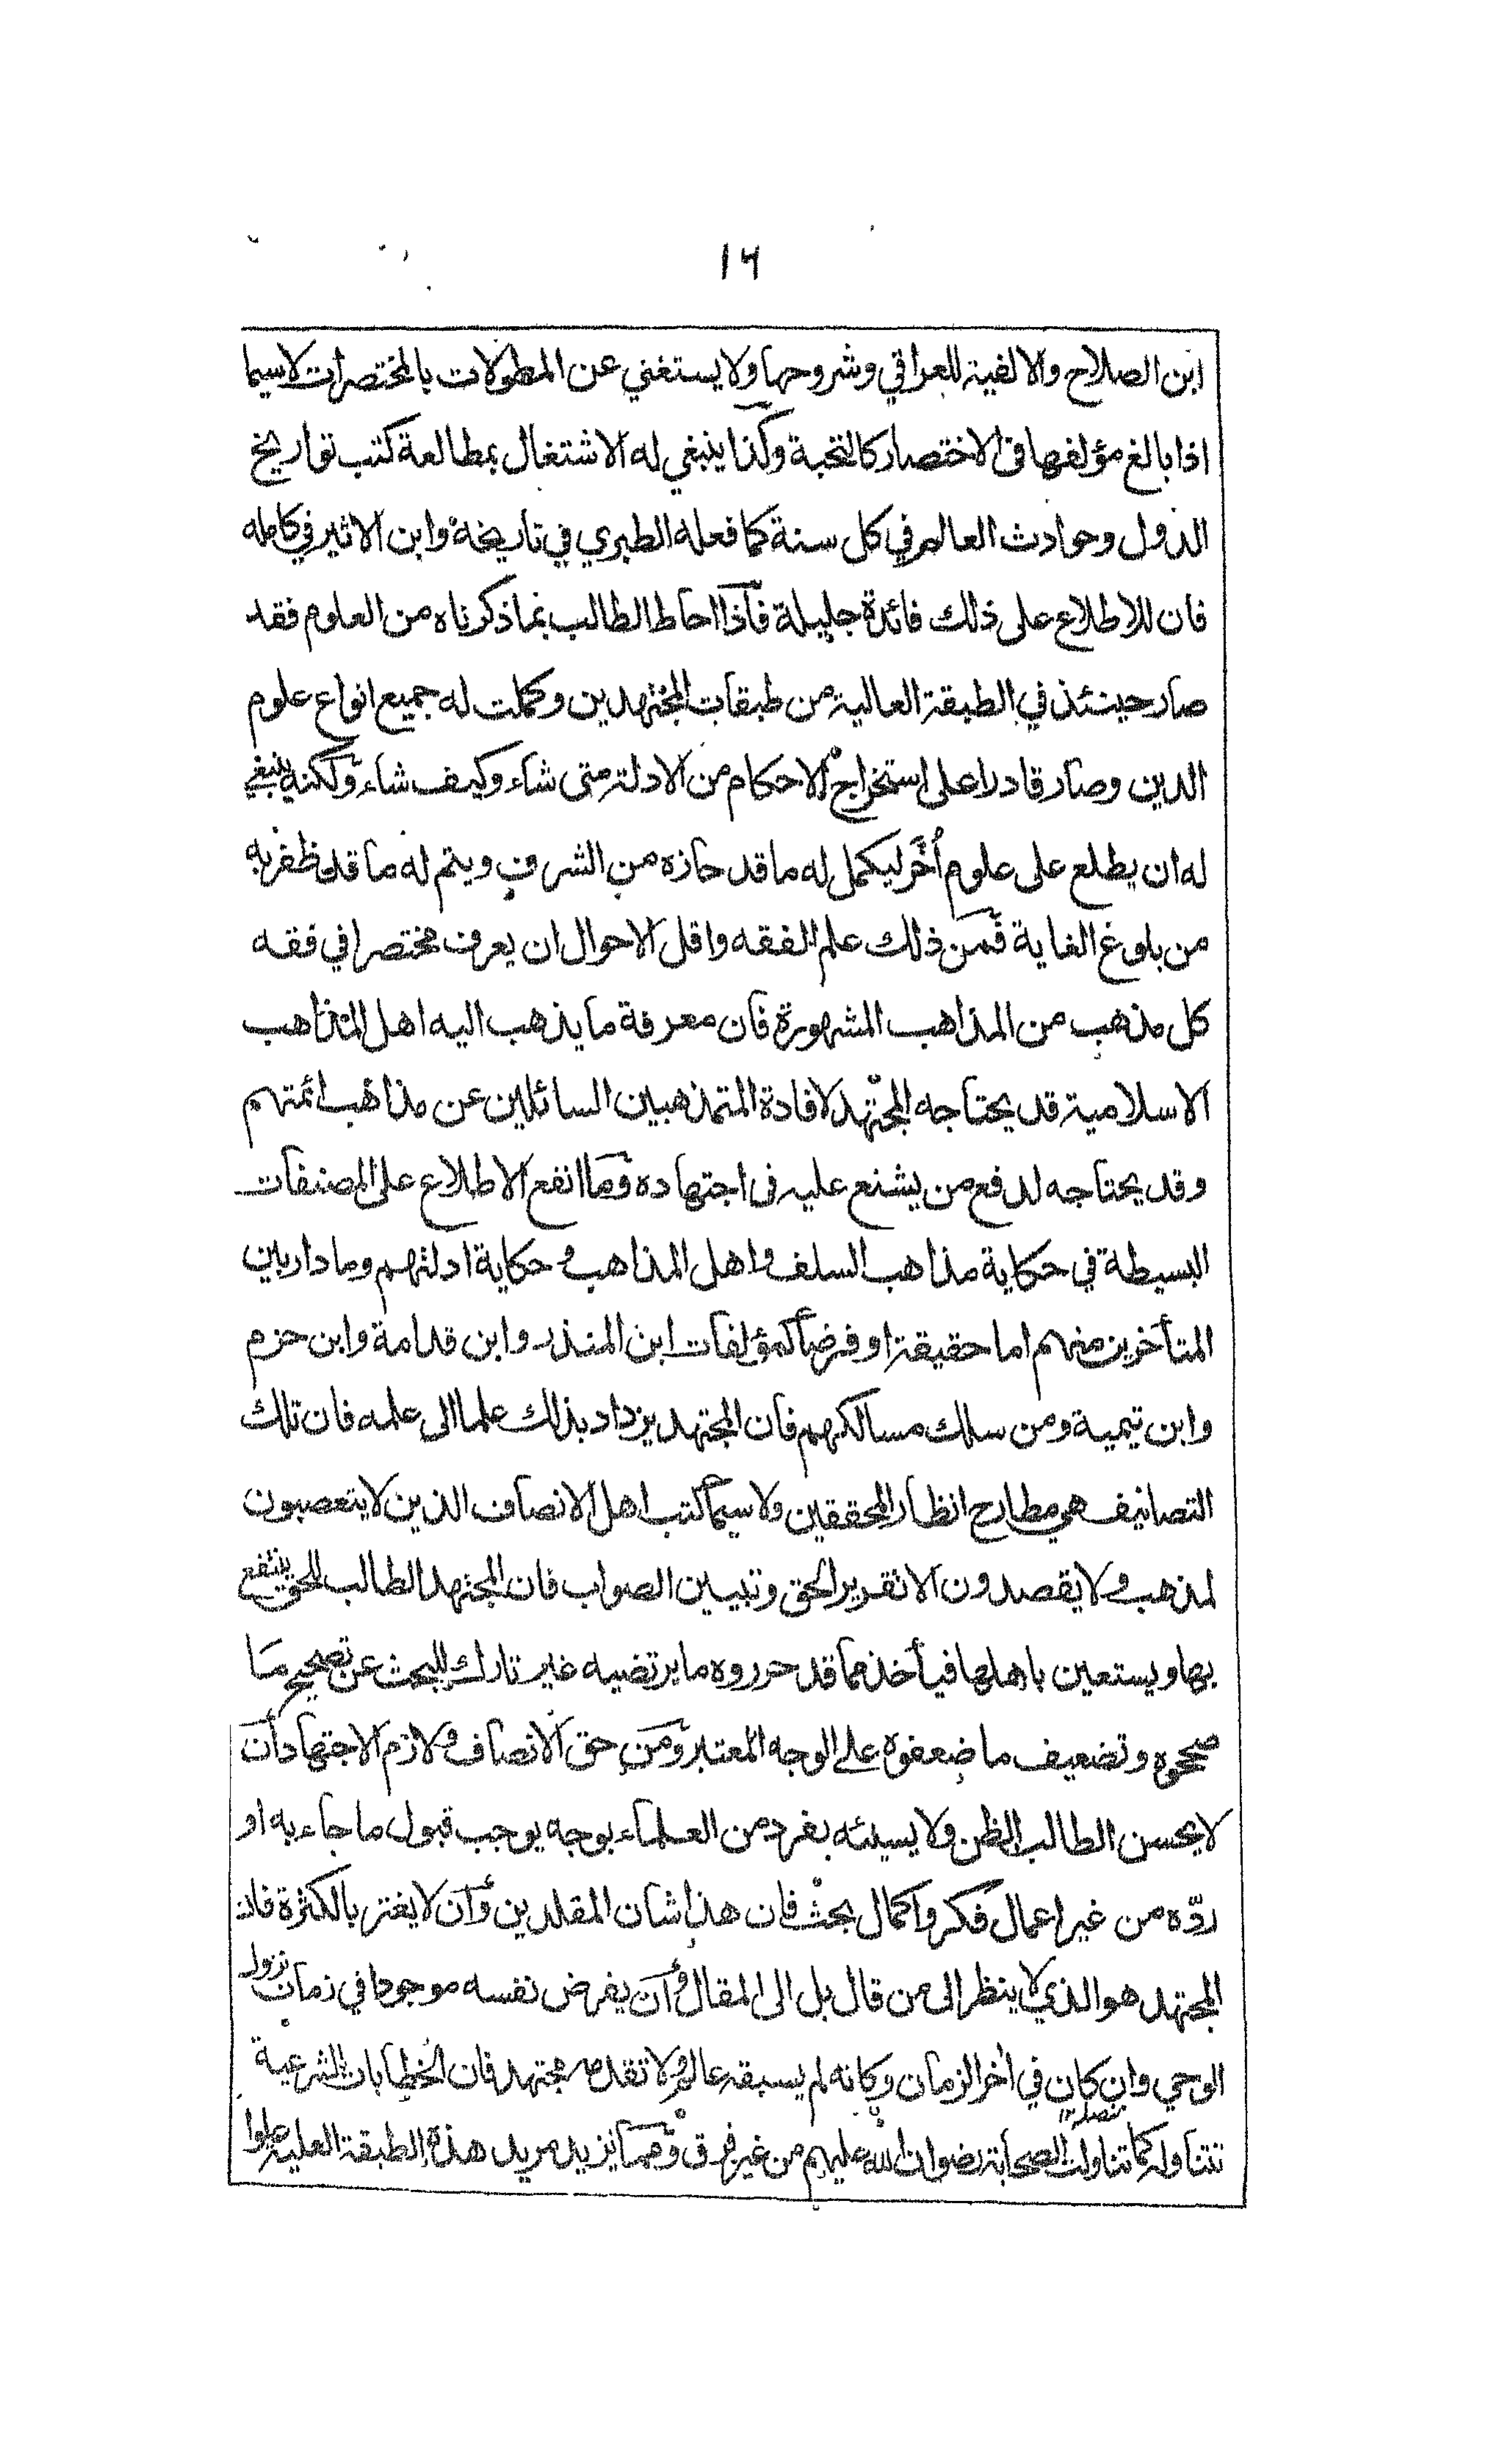 ١٦
ابن الصلاح والالفية للعراقي وشروحها ولا يستغني عن المطولات بالمختصرات لاسيما
اذا بالغ مؤلفها في الاختصار كالنخبة وكذا ينبغي له الاشتغال بمطالعة كتب تواريخ
الدول وحوادث العالم في كل سنة كما فعله الطبري في تاريخه وابن الاثير في كامله
فان للاطلاع على ذلك فائدة جليلة فاذا احاط الطالب بما ذكرناه من العلوم فقد
صار حينئذ في الطبقة العالية من طبقات المجتهدين وكملت له جميع انواع علوم
الدين وصار قادرا على استخراج الاحكام من الادلة متى شاء وكيف شاء ولكنه ينبغي
له ان يطلع على علوم أُخَر ليكمل له ما قد حازه من الشرف ويتم له ما قد ظفر به
من بلوغ الغاية فمن ذلك علم الفقه واقل الاحوال ان يعرف مختصرا في فقه
كل مذهب من المذاهب المشهورة فان معرفة ما يذهب اليه اهل المذاهب
الاسلامية قد يحتاجه المجتهد لافادة المتمذهبين السائلين عن مذاهب ائمتهم
وقد يحتاجه لدفع من يشنع عليه في اجتهاده وما انفع الاطلاع على المصنفات
البسيطة في حكاية مذاهب السلف واهل المذاهب وحكاية ادلتهم وما دار بين
المتأخرين منهم اما حقيقة او فرضا كمؤلفات ابن المنذر وابن قدامة وابن حزم
وابن تيمية ومن سلك مسالكهم فان المجتهد يزداد بذلك علما الى علمه فان تلك
التصانيف هي مطارح انظار المحققين ولا سيما كتب اهل الانصاف الذين لا يتعصبون
لمذهب ولا يقصدون الا تقرير الحق وتبيين الصواب فان المجتهد الطالب للحق ينتفع
بها ويستعين باهلها فيأخذ مما قد حرروه ما يرتضيه غير تارك للبحث عن تصحيح ما
صححوه وتضعيف ما ضعفوه على الوجه المعتبر ومن حق الانصاف ولازم الاجتهاد ان
لا يحسن الطالب الظن ولا يسيئه بفرد من العلماء بوجه يوجب قبول ما جاء به او
ردّه من غير اعمال فكر واكمال بحث فان هذا شان المقلدين وان لا يغتر بالكثرة فان
المجتهد هو الذي لا ينظر الى من قال بل الى المقال وان يفرض نفسه موجودا في زمان نزول
الوحي وان كان في اٰخر الزمان وكانه لم يسبقه عالم ولا تقدمه مجتهد فان الخطابات الشرعية
تتناوله كما تناولت الصحابة رضوان الله عليهم من غير فرق ومما يزيد مريد هذه الطبقة العلية علوا